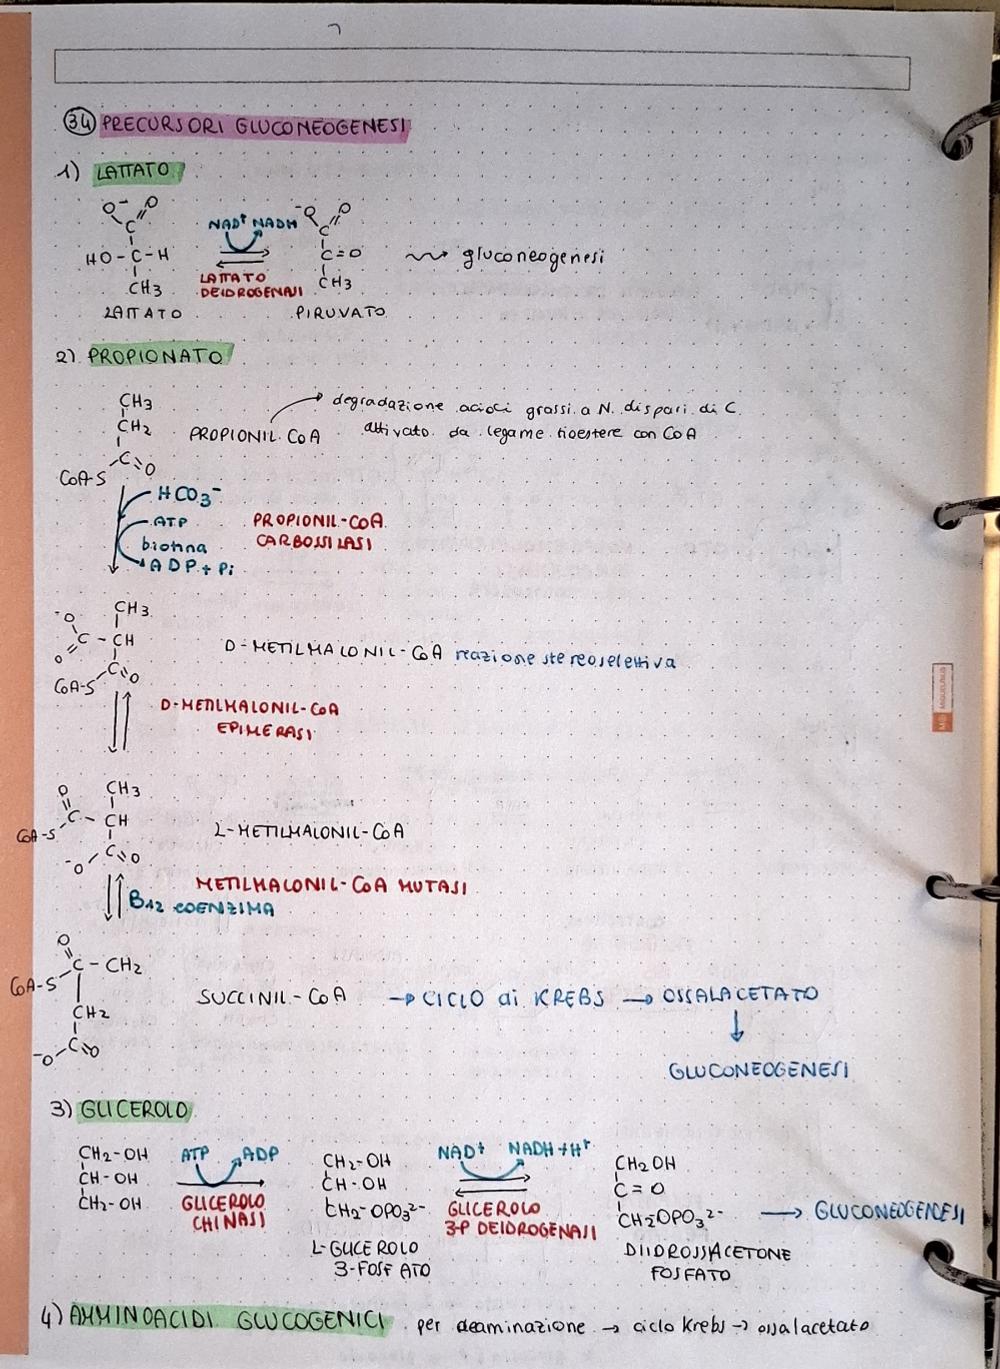 34 PRECURSORI GLUCONEOGENESI
1) LATTATO
O⁻ O
C
HO-C-H
CH3
LATTATO
NAD⁺ NADH
LATTATO
DEIDROGENASI
⁻O O
C
C=O
CH3
PIRUVATO
gluconeogenesi
2) PROPIONATO
CH3
CH2
C=O
CoA-S
PROPIONIL CoA
degradazione acidi grassi a N. dispari di C.
attivato da legame tioestere con CoA
HCO3⁻
ATP
biotina
ADP + Pi
PROPIONIL-CoA
CARBOSSILASI
CH3
⁻O
C - CH
O
C=O
CoA-S
D-METILMALONIL-CoA reazione stereoselettiva
D-METILMALONIL-CoA
EPIMERASI
O CH3
C - CH
CoA-S
⁻O C=O
L-METILMALONIL-CoA
METILMALONIL-CoA MUTASI
B12 COENZIMA
O
C - CH2
CoA-S
CH2
⁻O C=O
SUCCINIL-CoA → CICLO di KREBS → OSSALACETATO
↓
GLUCONEOGENESI
3) GLICEROLO
CH2-OH
CH-OH
CH2-OH
ATP ADP
GLICEROLO
CHINASI
CH2-OH
CH-OH
CH2-OPO3²⁻
L-GLICEROLO
3-FOSFATO
NAD⁺ NADH+H⁺
GLICEROLO
3-P DEIDROGENASI
CH2OH
C=O
CH2OPO3²⁻
DIIDROSSIACETONE
FOSFATO
→ GLUCONEOGENESI
4) AMMINOACIDI GLUCOGENICI per deaminazione → ciclo Krebs → ossalacetato
MIQUELRIUS